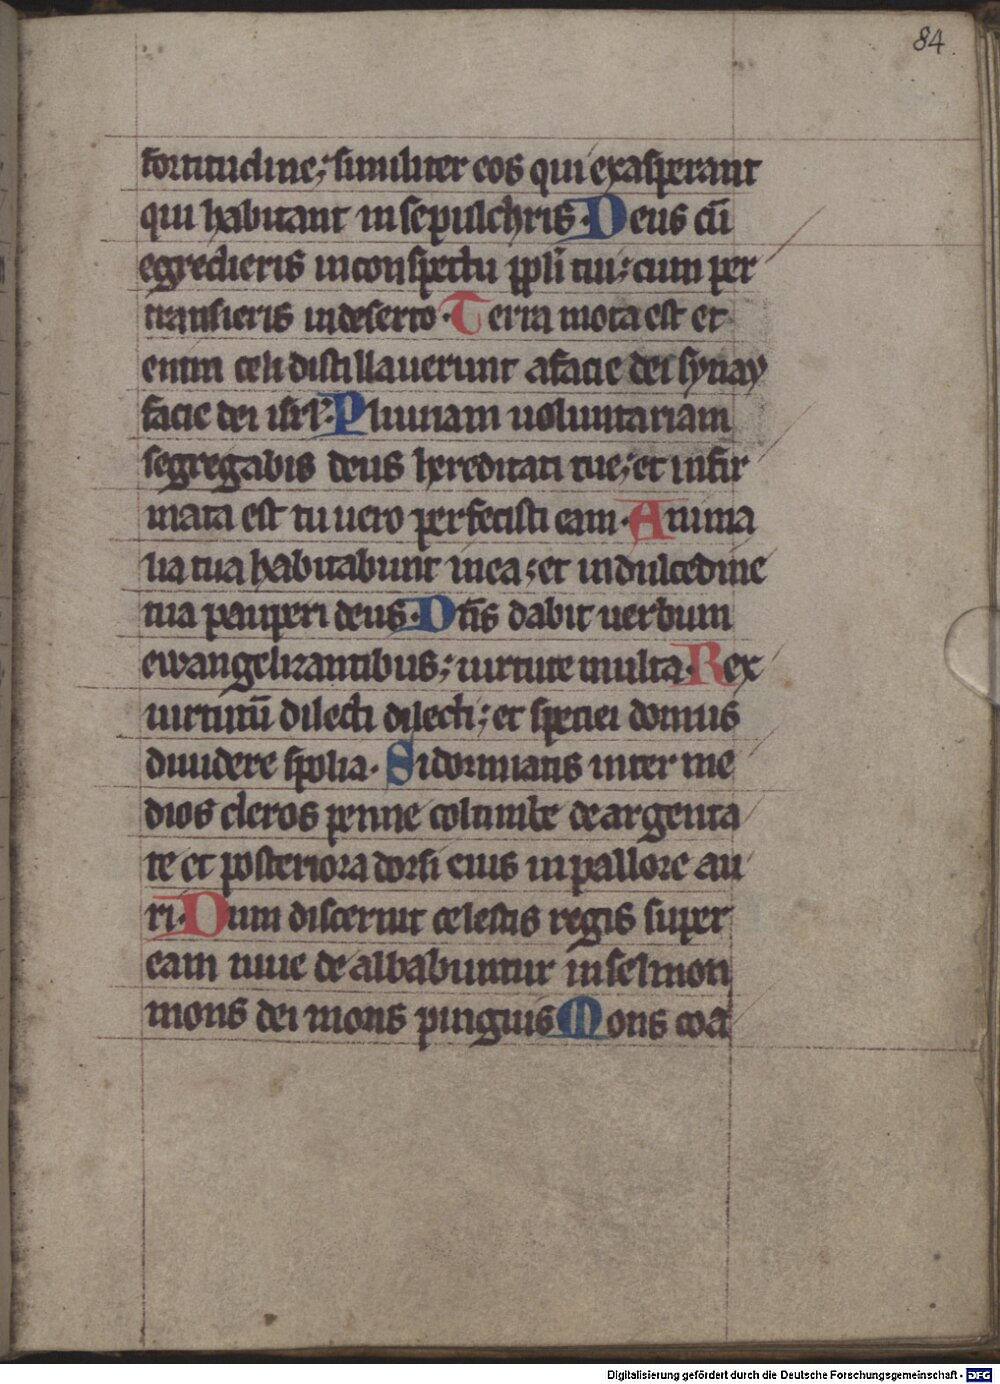 84
fortitudine; similiter eos qui exasperant
qui habitant in sepulchris. Deus cū
egredieris in conspectu ppłi tui; cum per
transieris in deserto. Terra mota est et
enim celi distillauerunt a facie dei synay
facie dei isrł. Pluuiam uoluntariam
segregabis deus hereditati tue; et infir
mata est tu uero perfecisti eam. Anima
lia tua habitabunt in ea; et in dulcedine
tua pauperi deus. Dn̄s dabit uerbum
ewangelizantibus; uirtute multa. Rex
uirtutū dilecti dilecti; et speciei domus
diuidere spolia. Si dormiatis inter me
dios cleros penne columbe de argenta
te et posteriora dorsi eius in pallore au
ri. Dum discernit celestis regis super
eam niue de albabuntur in selmon
mons dei mons pinguis Mons coa
Digitalisierung gefördert durch die Deutsche Forschungsgemeinschaft - DFG